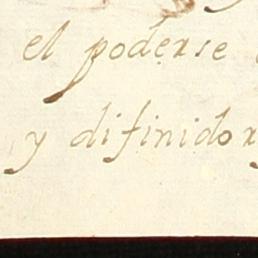 el poderse
y difinidor